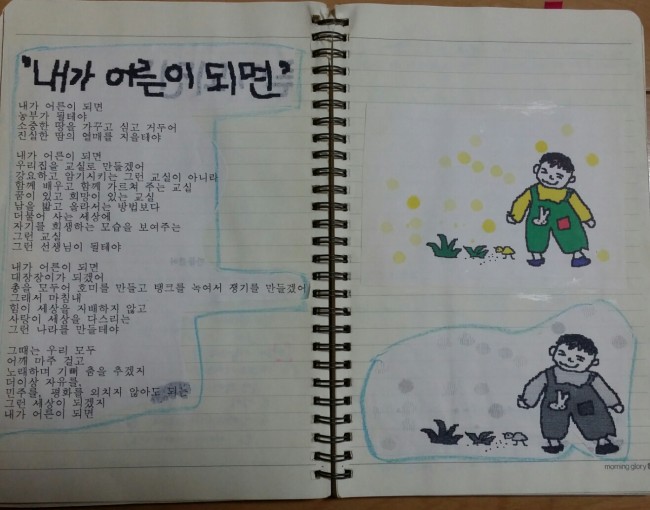 "내가 어른이 되면"
내가 어른이 되면
농부가 될테야
소중한 땅을 가꾸고 심고 거두어
진실한 땀의 열매를 지을테야
내가 어른이 되면
우리집을 교실로 만들겠어
강요하고 암기시키는 그런 교실이 아니라
함께 배우고 함께 가르쳐 주는 교실
꿈이 있고 희망이 있는 교실
남을 밟고 올라서는 방법보다
더불어 사는 세상에
자기를 희생하는 모습을 보여주는
그런 교실
그런 선생님이 될테야
내가 어른이 되면
대장장이가 되겠어
총을 모두어 호미를 만들고 탱크를 녹여서 쟁기를 만들겠어
그래서 마침내
힘이 세상을 지배하지 않고
사랑이 세상을 다스리는
그런 나라를 만들테야
그때는 우리 모두
어깨 마주 걸고
노래하며 기뻐 춤을 추겠지
더이상 자유를,
민주를, 평화를 외치지 않아도 되는
그런 세상이 되겠지
내가 어른이 되면
morning glory